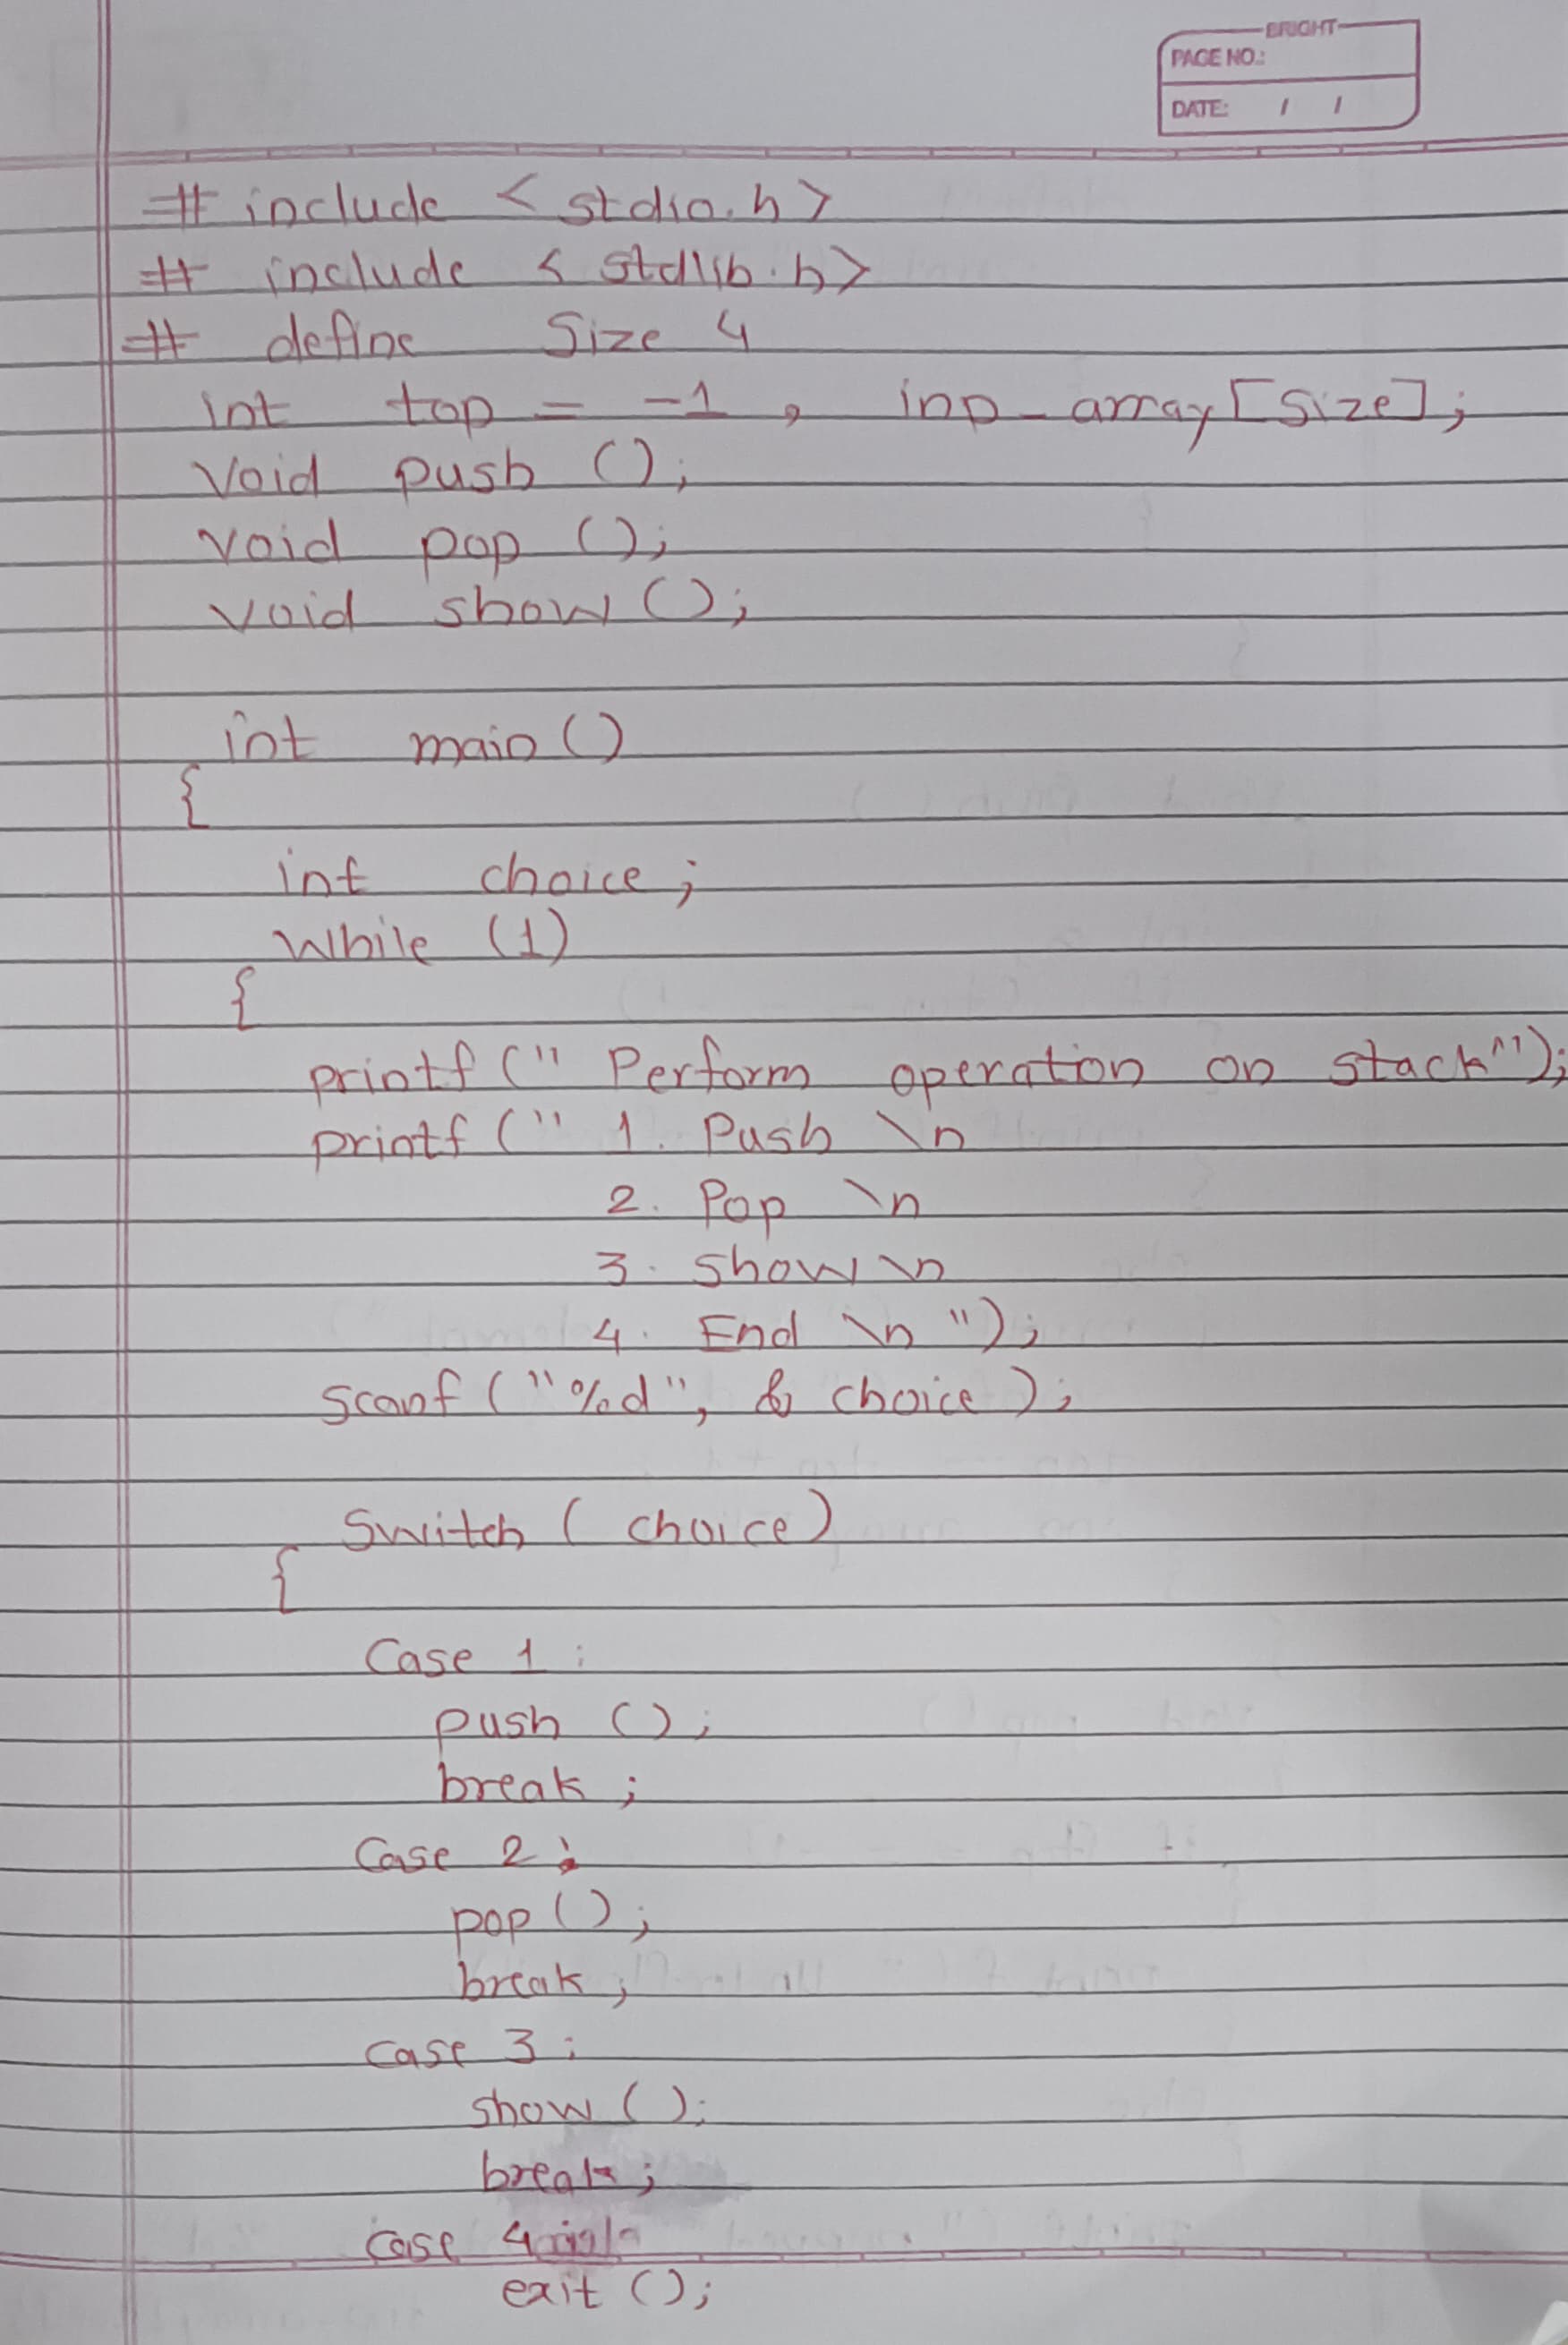 BRIGHT
PAGE NO.:
DATE: / /
# include < stdio.h >
# include < stdlib.h >
# define Size 4
int top = -1 , inp_array[size];
void push ();
void pop ();
void show ();
int main ()
{
int choice ;
while (1)
{
printf (" Perform operation on stack");
printf (" 1. Push \n
2. Pop \n
3. show \n
4. End \n ");
scanf ("%d", & choice );
switch ( choice )
{
Case 1 :
push ();
break ;
Case 2 :
pop ();
break ;
case 3 :
show ();
break ;
case 4
exit ();